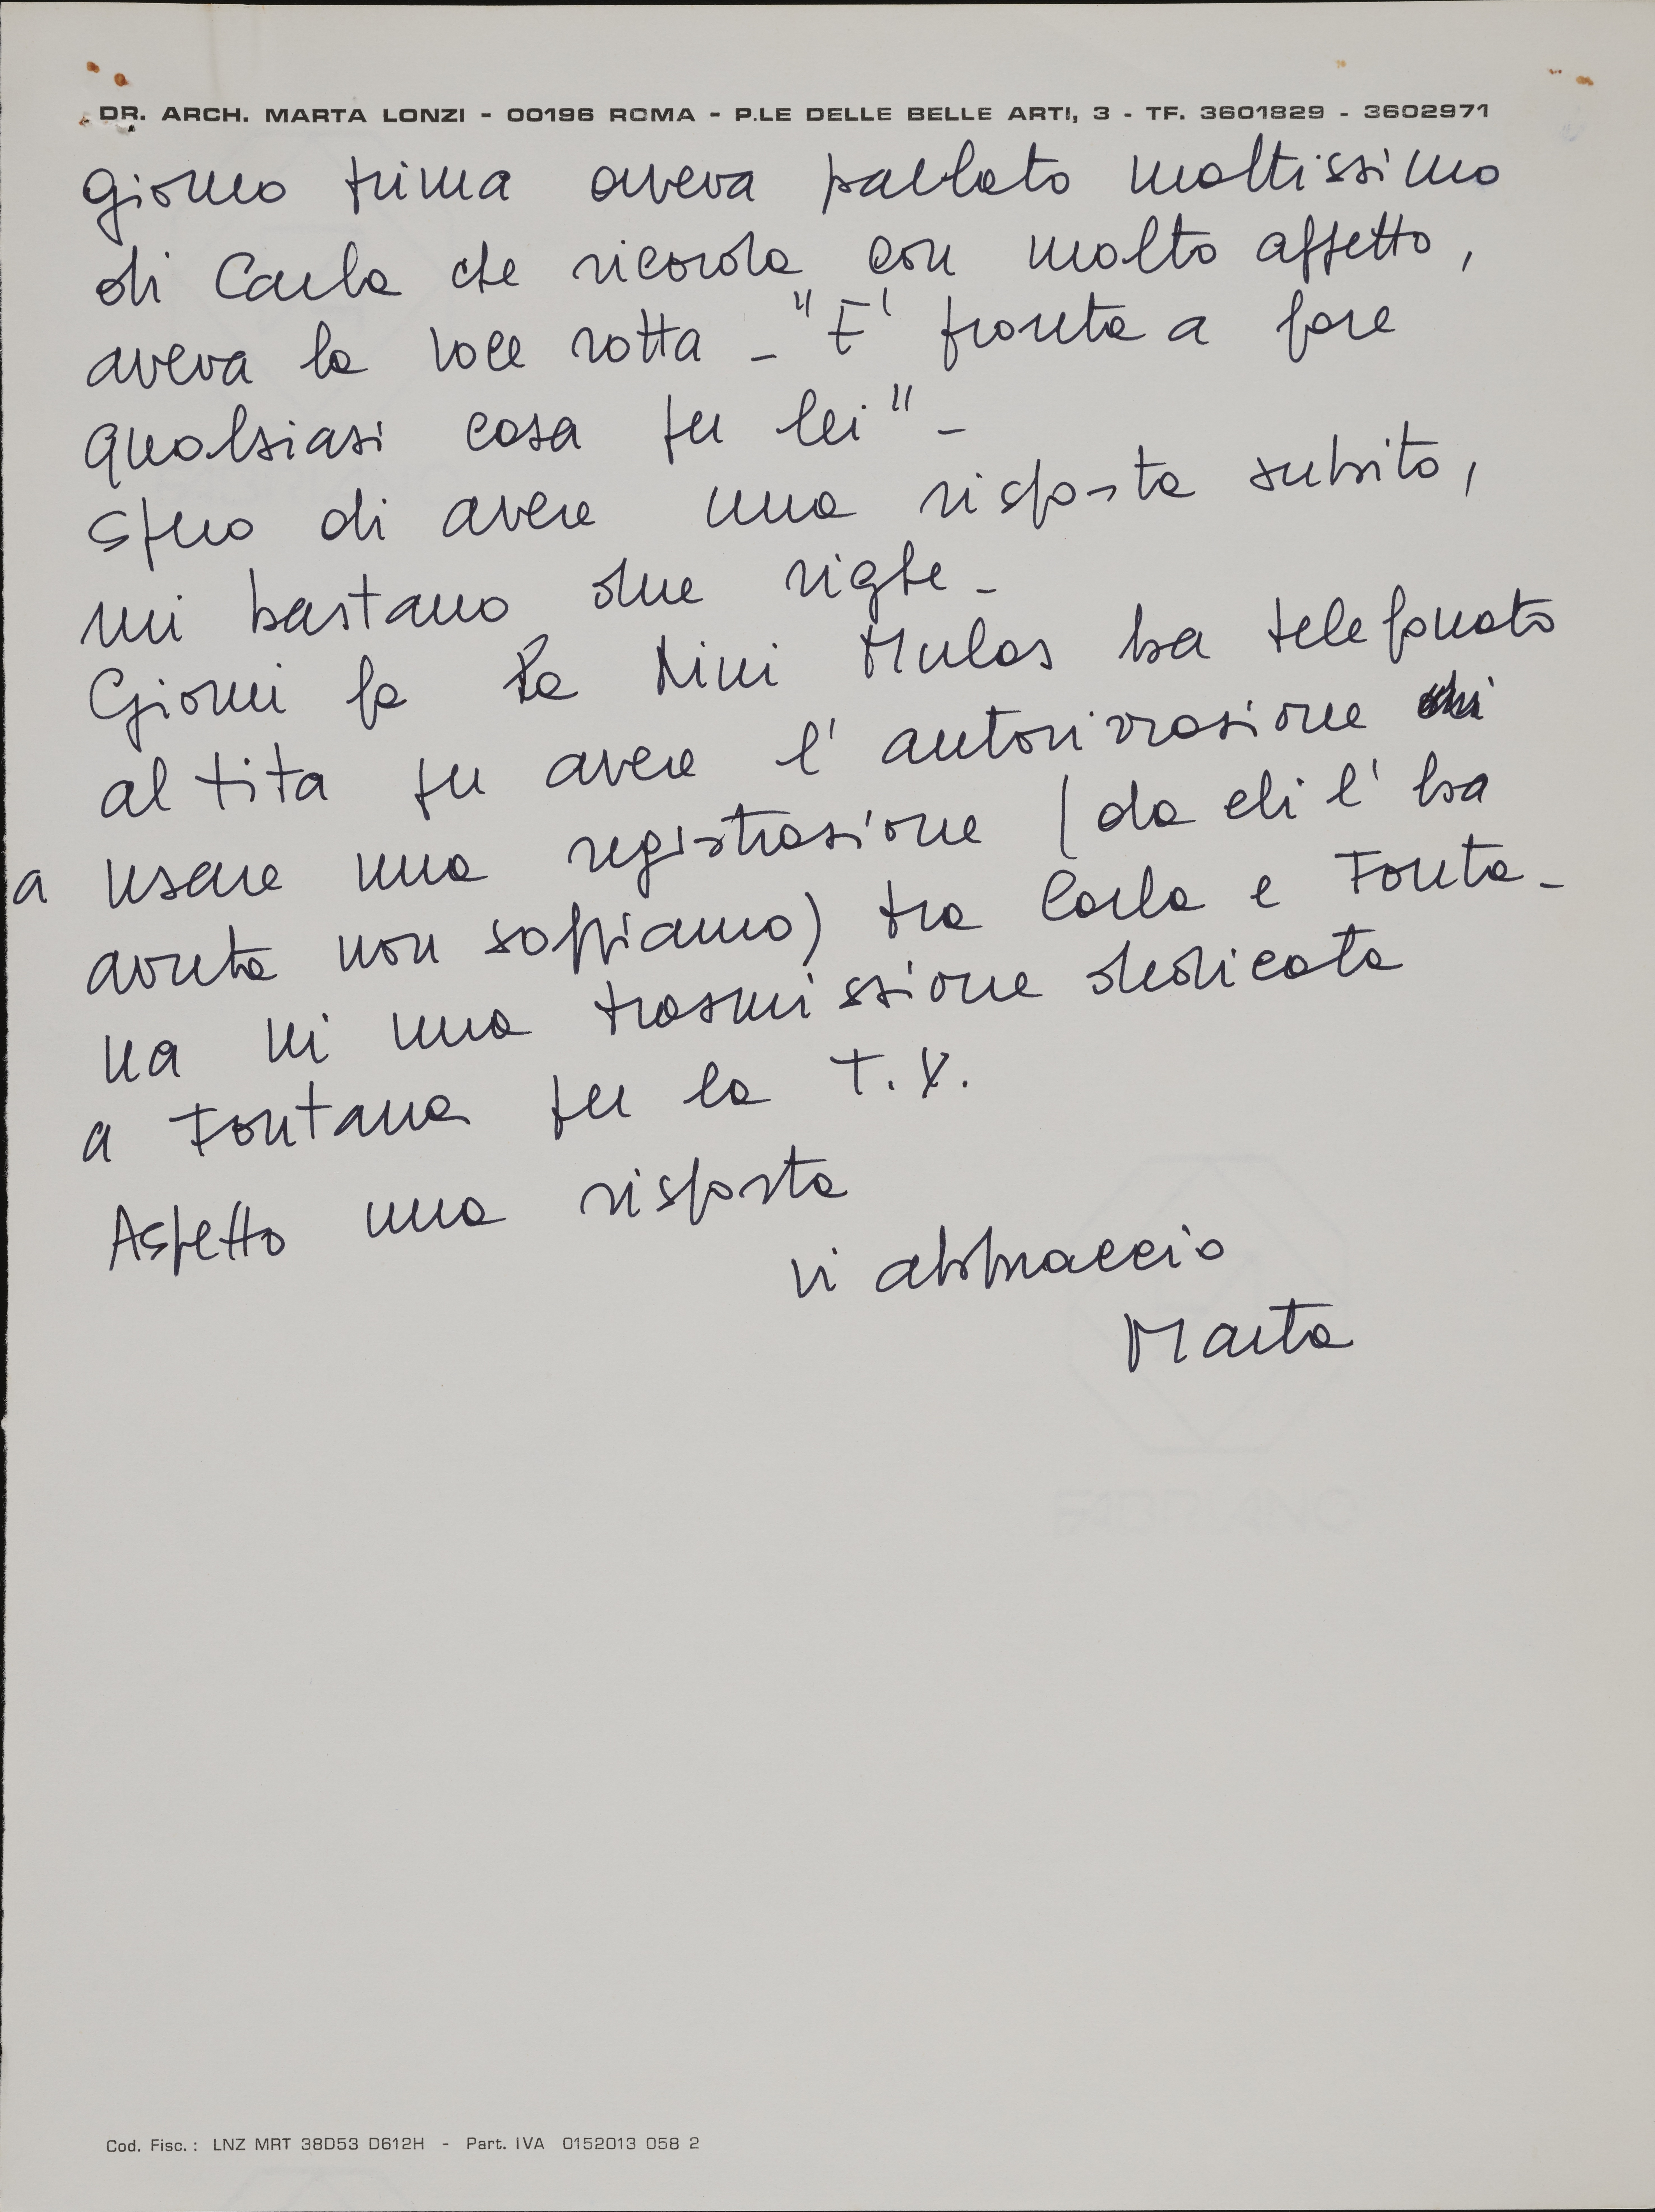 DR. ARCH. MARTA LONZI - 00196 ROMA - P.LE DELLE BELLE ARTI, 3 - TF. 3601829 - 3602971
giorno prima aveva parlato moltissimo
di Carla che ricorda con molto affetto,
aveva la voce rotta - "E' pronta a fare
qualsiasi cosa per lei" -
Spero di avere una risposta subito,
mi bastano due righe -
Giorni fa la Nini Mulas ha telefonato
al tita per avere l'autorizzazione
a usare una registrazione (da chi l'ha
avuta non sappiamo) tra Carla e Fonta-
na in una trasmissione dedicata
a Fontana per la T.V.
Aspetto una risposta
vi abbraccio
Marta
Cod. Fisc.: LNZ MRT 38D53 D612H - Part. IVA 0152013 058 2